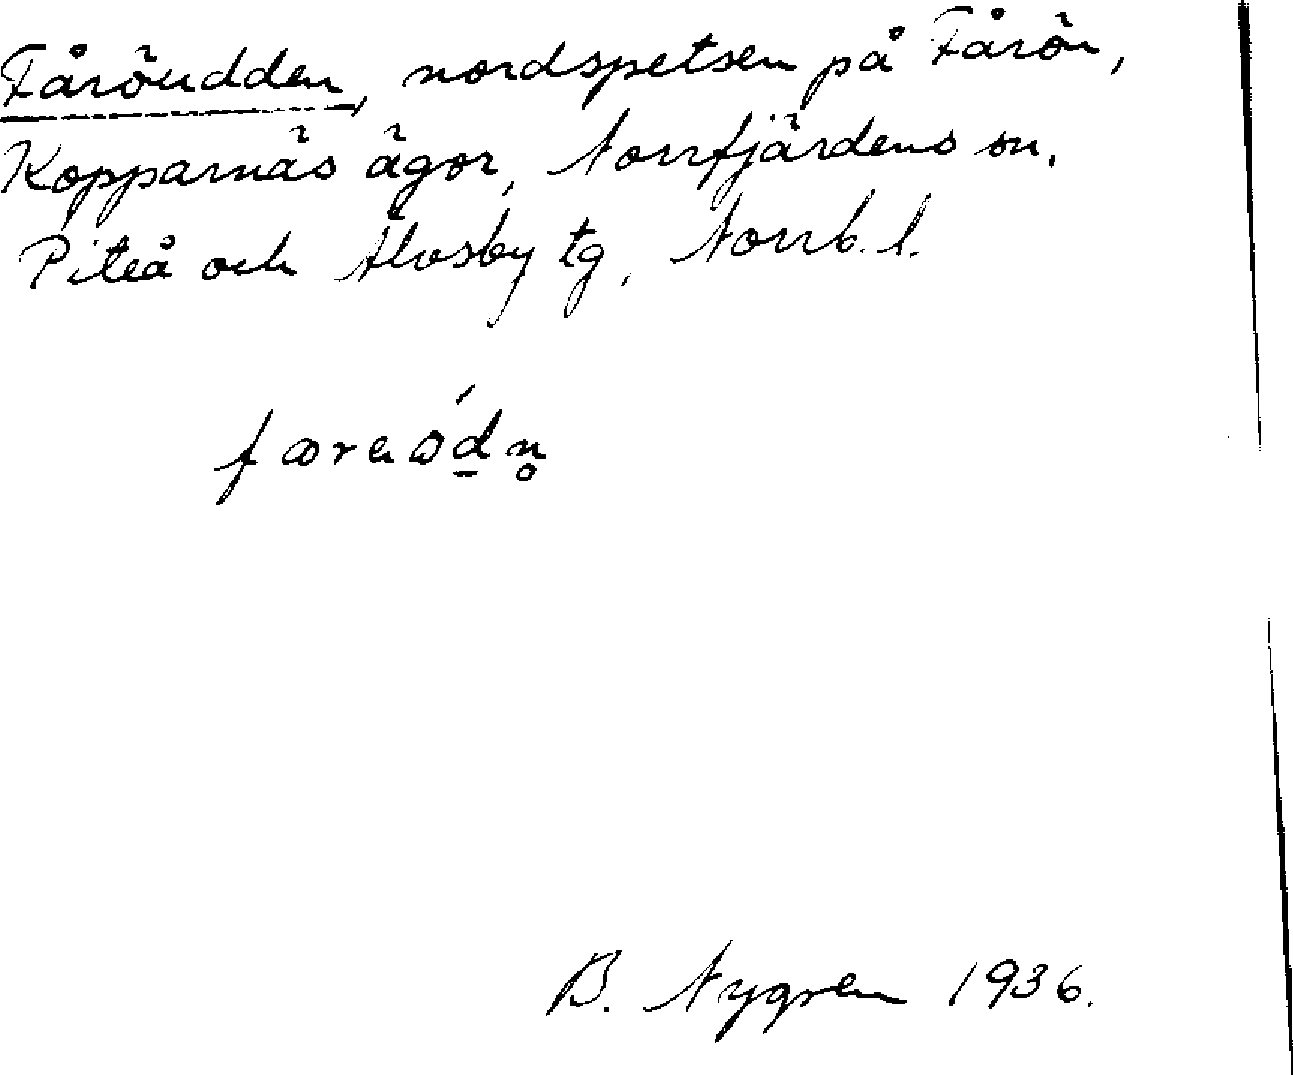 Fåröudden, nordspetsen på Fårön,
Kopparnäs ägor, Norrfjärdens sn.
Piteå och Älvsby tg, Norrb. l.
B. Nygren 1936.